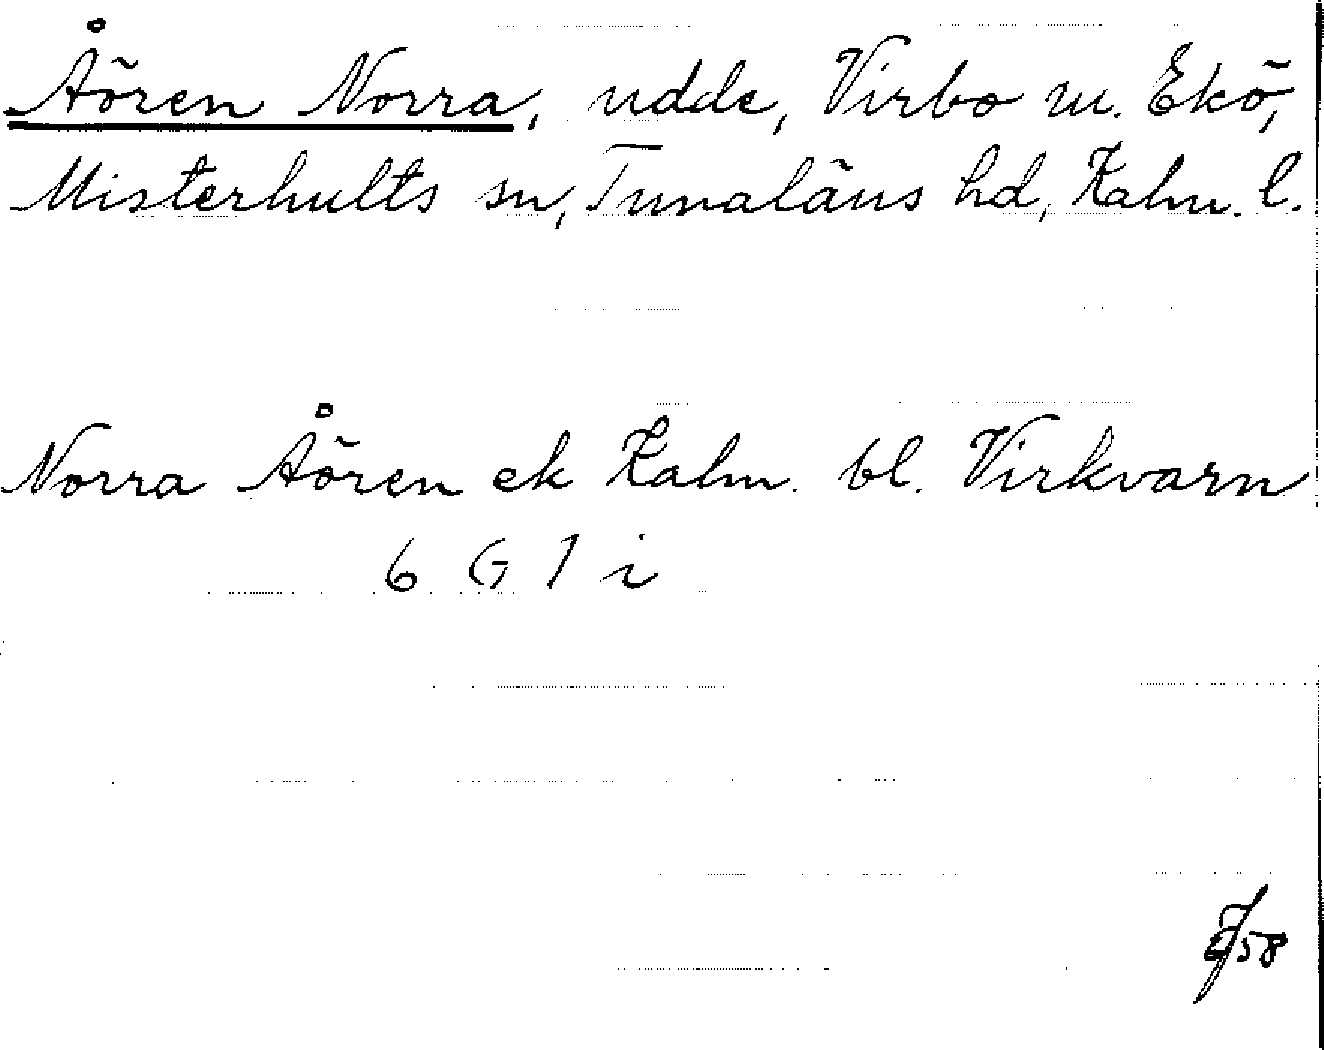 Åören Norra, udde, Virbo m. Ekö,
Misterhults sn, Tunaläns hd, Kalm. l.
Norra Åören ek Kalm. bl. Virkvarn
6 G 1 i
58